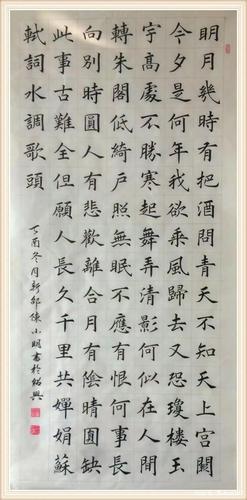 明月幾時有把酒問青天不知天上宮闕
今夕是何年我欲乘風歸去又恐瓊樓玉
宇高處不勝寒起舞弄清影何似在人間
轉朱閣低綺戶照無眠不應有恨何事長
向別時圓人有悲歡離合月有陰晴圓缺
此事古難全但願人長久千里共嬋娟蘇
軾詞水調歌頭
丁酉冬月新邵陳小明書於紹興